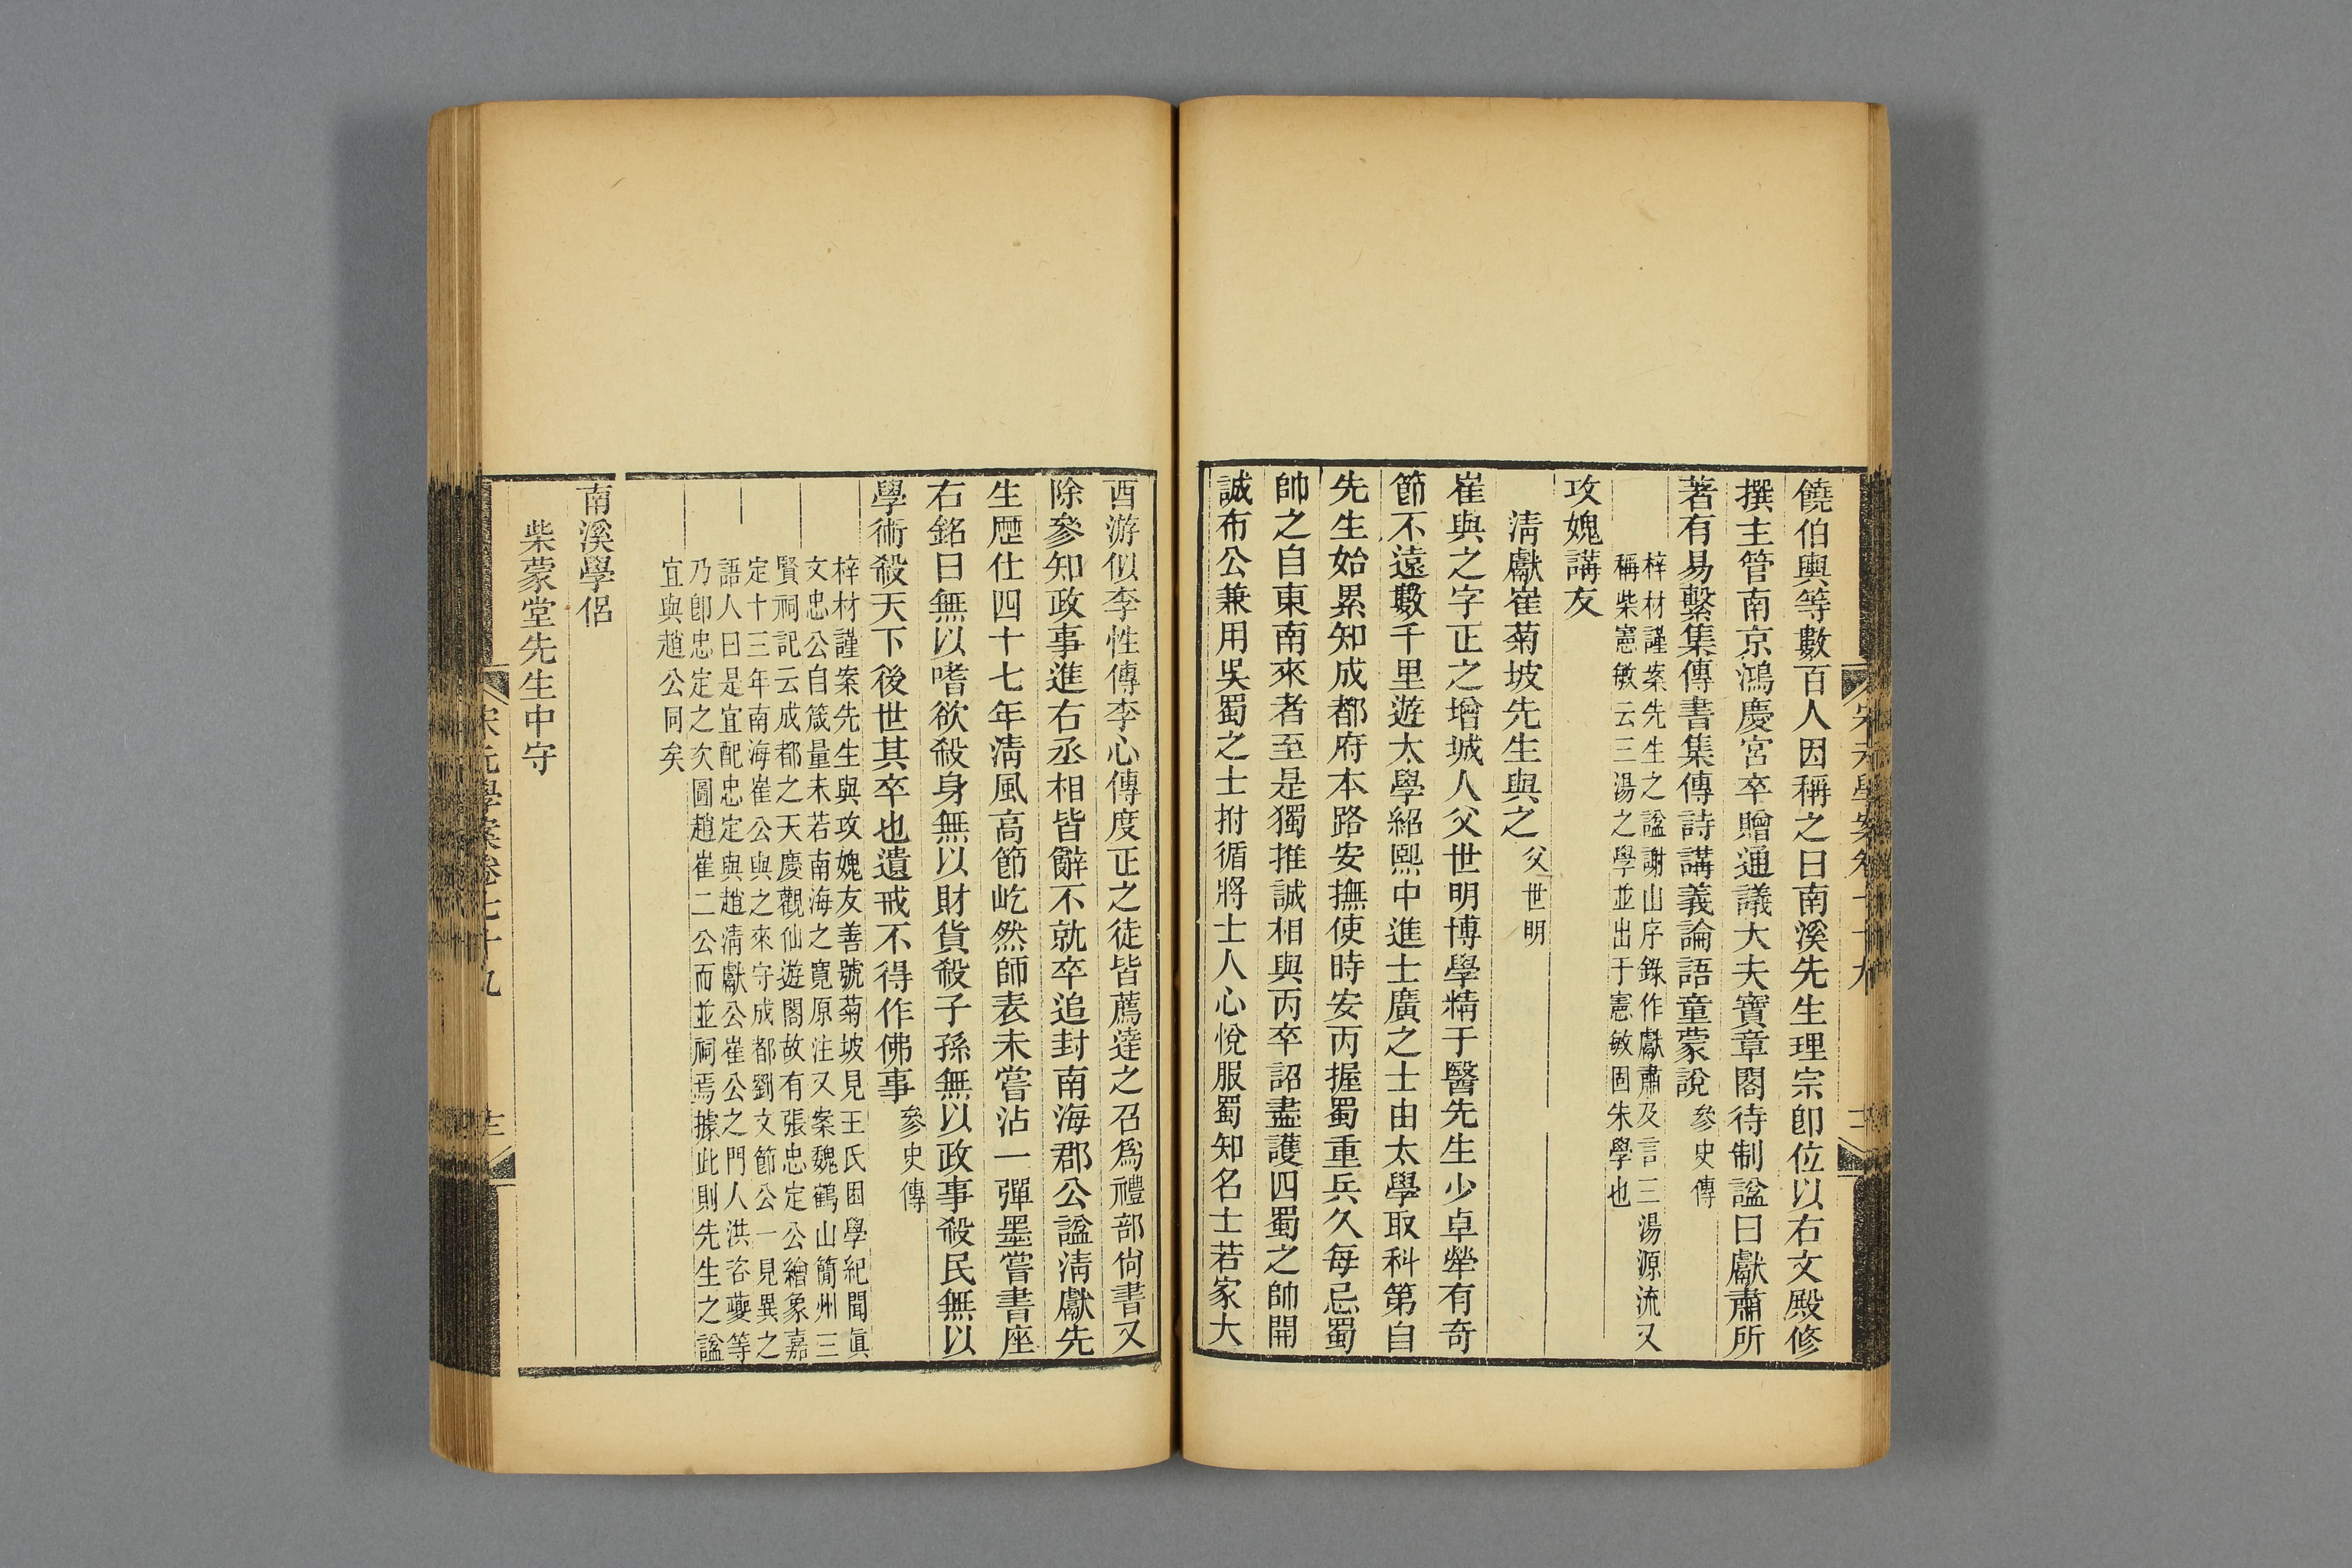 饒伯輿等數百人因稱之曰南溪先生理宗卽位以右文殿修
撰主管南京鴻慶宮卒贈通議大夫寶章閣待制諡曰獻肅所
著有易繫集傳書集傳詩講義論語童蒙說參史傳
梓材謹案先生之諡謝山序錄作獻肅及言三湯源流又
稱柴憲敏云三湯之學並出于憲敏固朱學也
攻媿講友
淸獻崔菊坡先生與之父世明
崔與之字正之增城人父世明博學精于醫先生少卓犖有奇
節不遠數千里遊太學紹熙中進士廣之士由太學取科第自
先生始累知成都府本路安撫使時安丙握蜀重兵久每忌蜀
帥之自東南來者至是獨推誠相與丙卒詔盡護四蜀之帥開
誠布公兼用吳蜀之士拊循將士人心悅服蜀知名士若家大
酉游似李性傳李心傳度正之徒皆薦達之召爲禮部尙書又
除參知政事進右丞相皆辭不就卒追封南海郡公諡淸獻先
生歷仕四十七年淸風高節屹然師表未嘗沾一彈墨嘗書座
右銘曰無以嗜欲殺身無以財貨殺子孫無以政事殺民無以
學術殺天下後世其卒也遺戒不得作佛事參史傳
梓材謹案先生與攻媿友善號菊坡見王氏困學紀聞眞
文忠公自箴量未若南海之寬原注又案魏鶴山簡州三
賢祠記云成都之天慶觀仙遊閣故有張忠定公繪象嘉
定十三年南海崔公與之來守成都劉文節公一見異之
語人曰是宜配忠定與趙淸獻公崔公之門人洪咨夔等
乃卽忠定之次圖趙崔二公而並祠焉據此則先生之諡
宜與趙公同矣
南溪學侶
柴蒙堂先生中守
宋元學案卷七十九